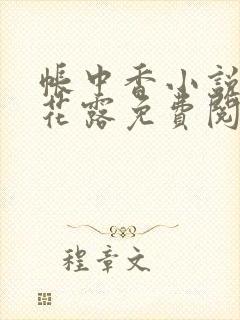 帳中香小說
花露免費閱
程章文